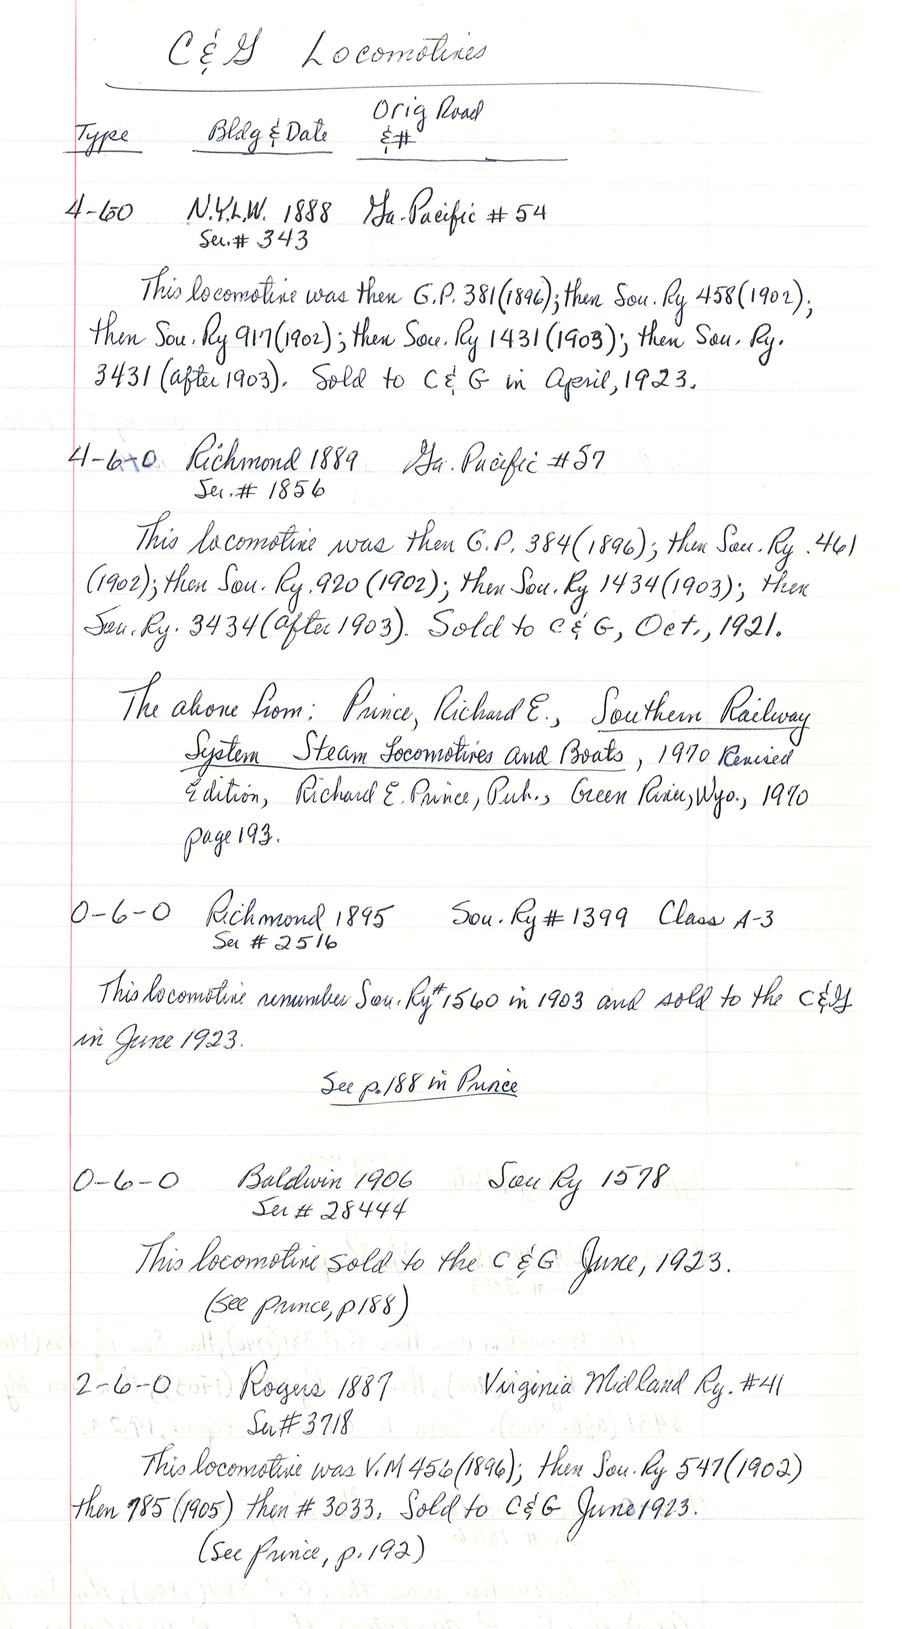 C & G Locomotives
Orig Road
Type Bldg & Date & #
4-60 N.Y.L.W. 1888 Ga. Pacific # 54
Ser. # 343
This locomotive was then G.P. 381 (1896); then Sou. Ry 458 (1902);
then Sou. Ry 917 (1902); then Sou. Ry 1431 (1903); then Sou. Ry.
3431 (after 1903). Sold to C & G in April, 1923.
4-6-0 Richmond 1889 Ga. Pacific # 57
Ser. # 1856
This locomotive was then G.P. 384 (1896); then Sou. Ry. 461
(1902); then Sou. Ry. 920 (1902); then Sou. Ry 1434 (1903); then
Sou. Ry. 3434 (after 1903). Sold to C & G, Oct., 1921.
The above from: Prince, Richard E., Southern Railway
System Steam Locomotives and Boats, 1970 Revised
Edition, Richard E. Prince, Pub., Green River, Wyo., 1970
page 193.
0-6-0 Richmond 1895 Sou. Ry # 1399 Class A-3
Ser # 2516
This locomotive renumber Sou. Ry # 1560 in 1903 and sold to the C & G
in June 1923.
See p. 188 in Prince
0-6-0 Baldwin 1906 Sou Ry 1578
Ser # 28444
This locomotive sold to the C & G June, 1923.
(see Prince, p 188)
2-6-0 Rogers 1887 Virginia Midland Ry. # 41
Ser # 3718
This locomotive was V.M 456 (1896); then Sou. Ry 547 (1902)
then 785 (1905) then # 3033. Sold to C & G June 1923.
(See Prince, p. 192)